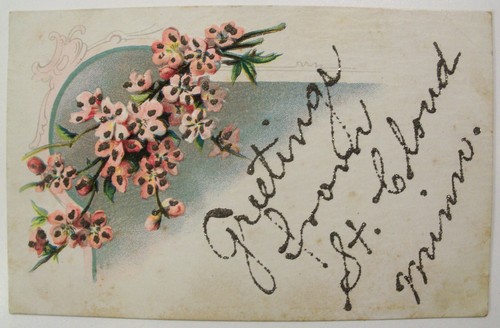 Greetings
From
St. Cloud
Minn.